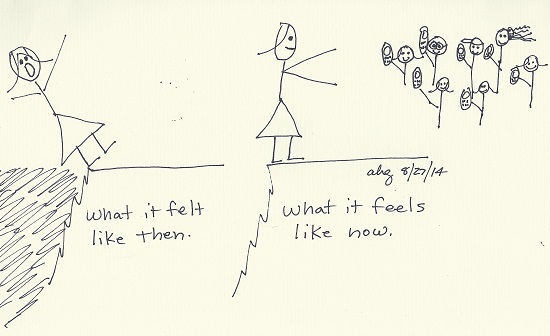 ahg 8/27/14
what it felt
like then.
what it feels
like now.